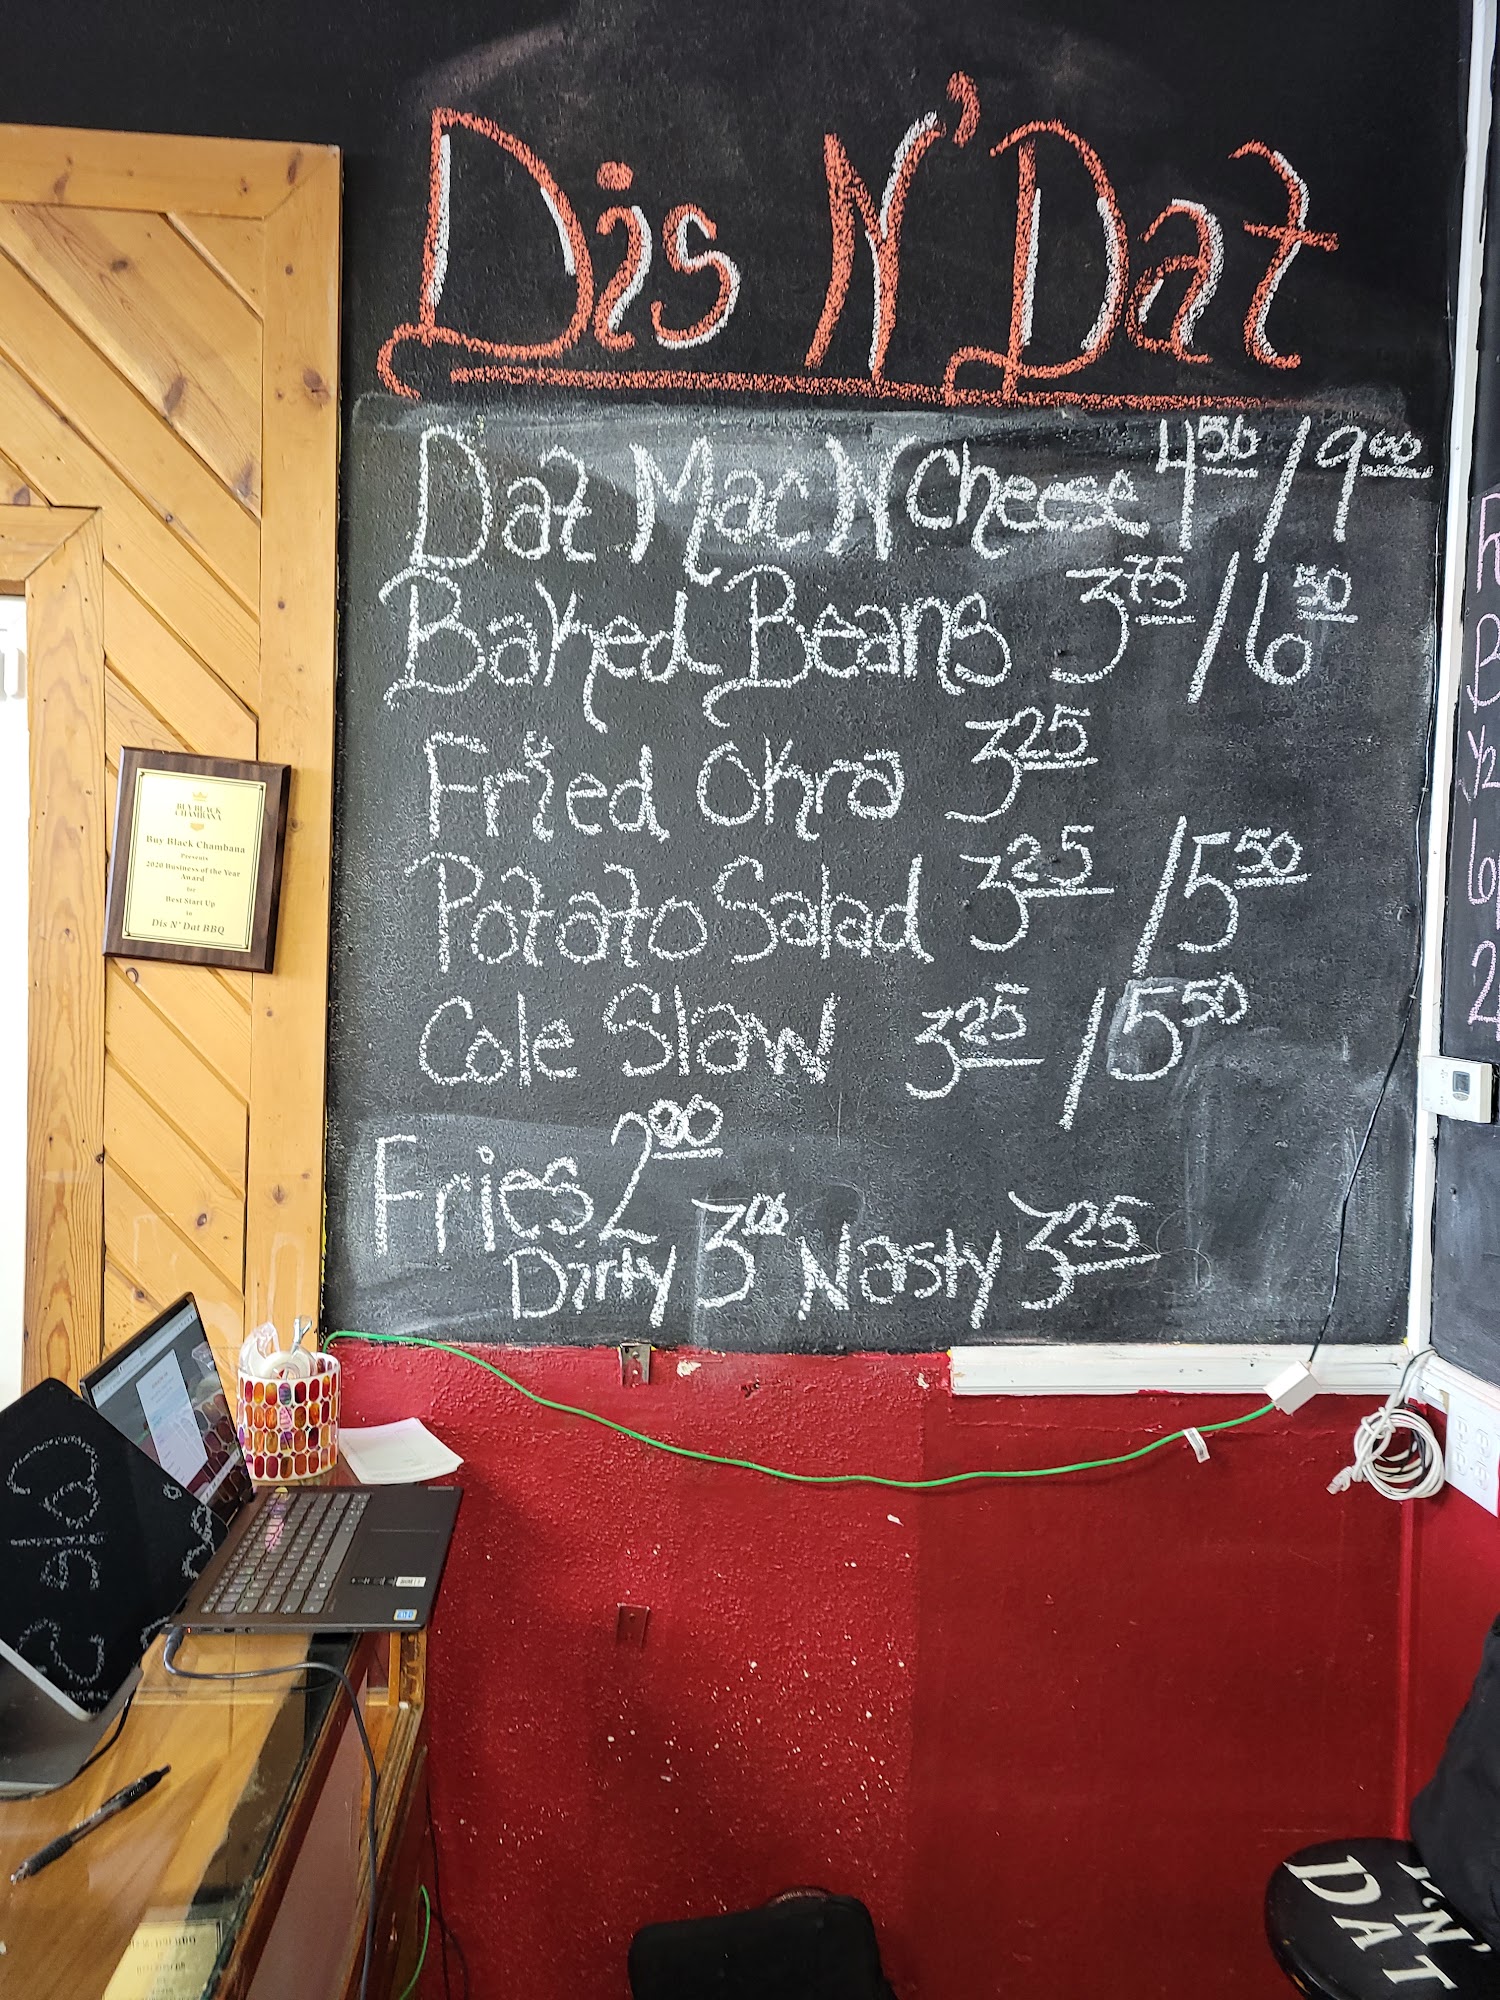 Dis N' Dat
Dat Mac N Cheese 4 50 / 9 00
Baked Beans 3 75 / 6 50
Fried Okra 3 25
Potato Salad 3 25 / 5 50
Cole Slaw 3 25 / 5 50
Fries 2 00
Dirty 3 00 Nasty 3 25
BUY BLACK
CHAMBANA
Buy Black Chambana
Presents
2020 Business of the Year
Award
for
Best Start Up
to
Dis N' Dat BBQ
B
1/2
2
N'
DAT